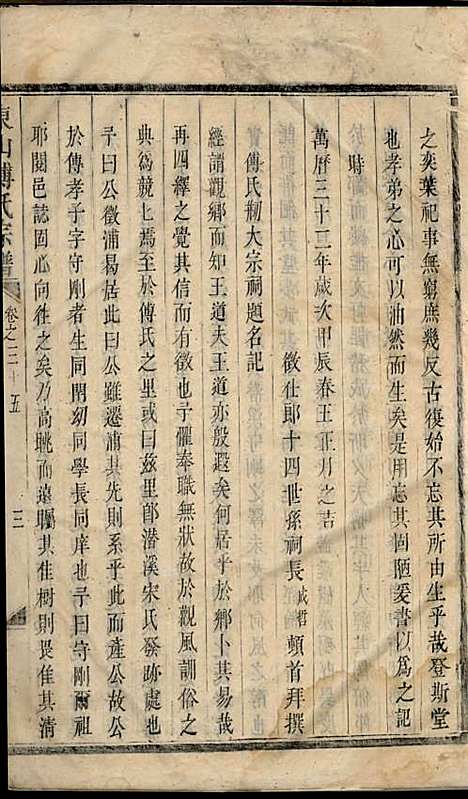 之奕葉祀事無窮庶幾反古復始不忘其所由生乎哉登斯堂
也孝弟之心可以油然而生矣是用忘其固陋爰書以為之記
時
萬曆三十二年歲次甲辰春王正月之吉
徵仕郎十四世孫祠長成哲頓首拜撰
傅氏剏大宗祠題名記
經謂觀鄉而知王道夫王道亦殷遐矣何居乎於鄉卜其易哉
再四繹之覺其信而有徵也予懼奉職無狀故於觀風訓俗之
典為競競焉至於傅氏之里或曰茲里即潛溪宋氏發跡處也
予曰公徵浦曷居此曰公雖遷浦其先則系乎此而產公故公
於傅孝子字守剛者生同閈幼同學長同庠也予曰守剛爾祖
耶閱邑誌固心向往之矣乃高眺而遠矚其佳樹則畏佳其清
東山傅氏宗譜 卷之二 五 三